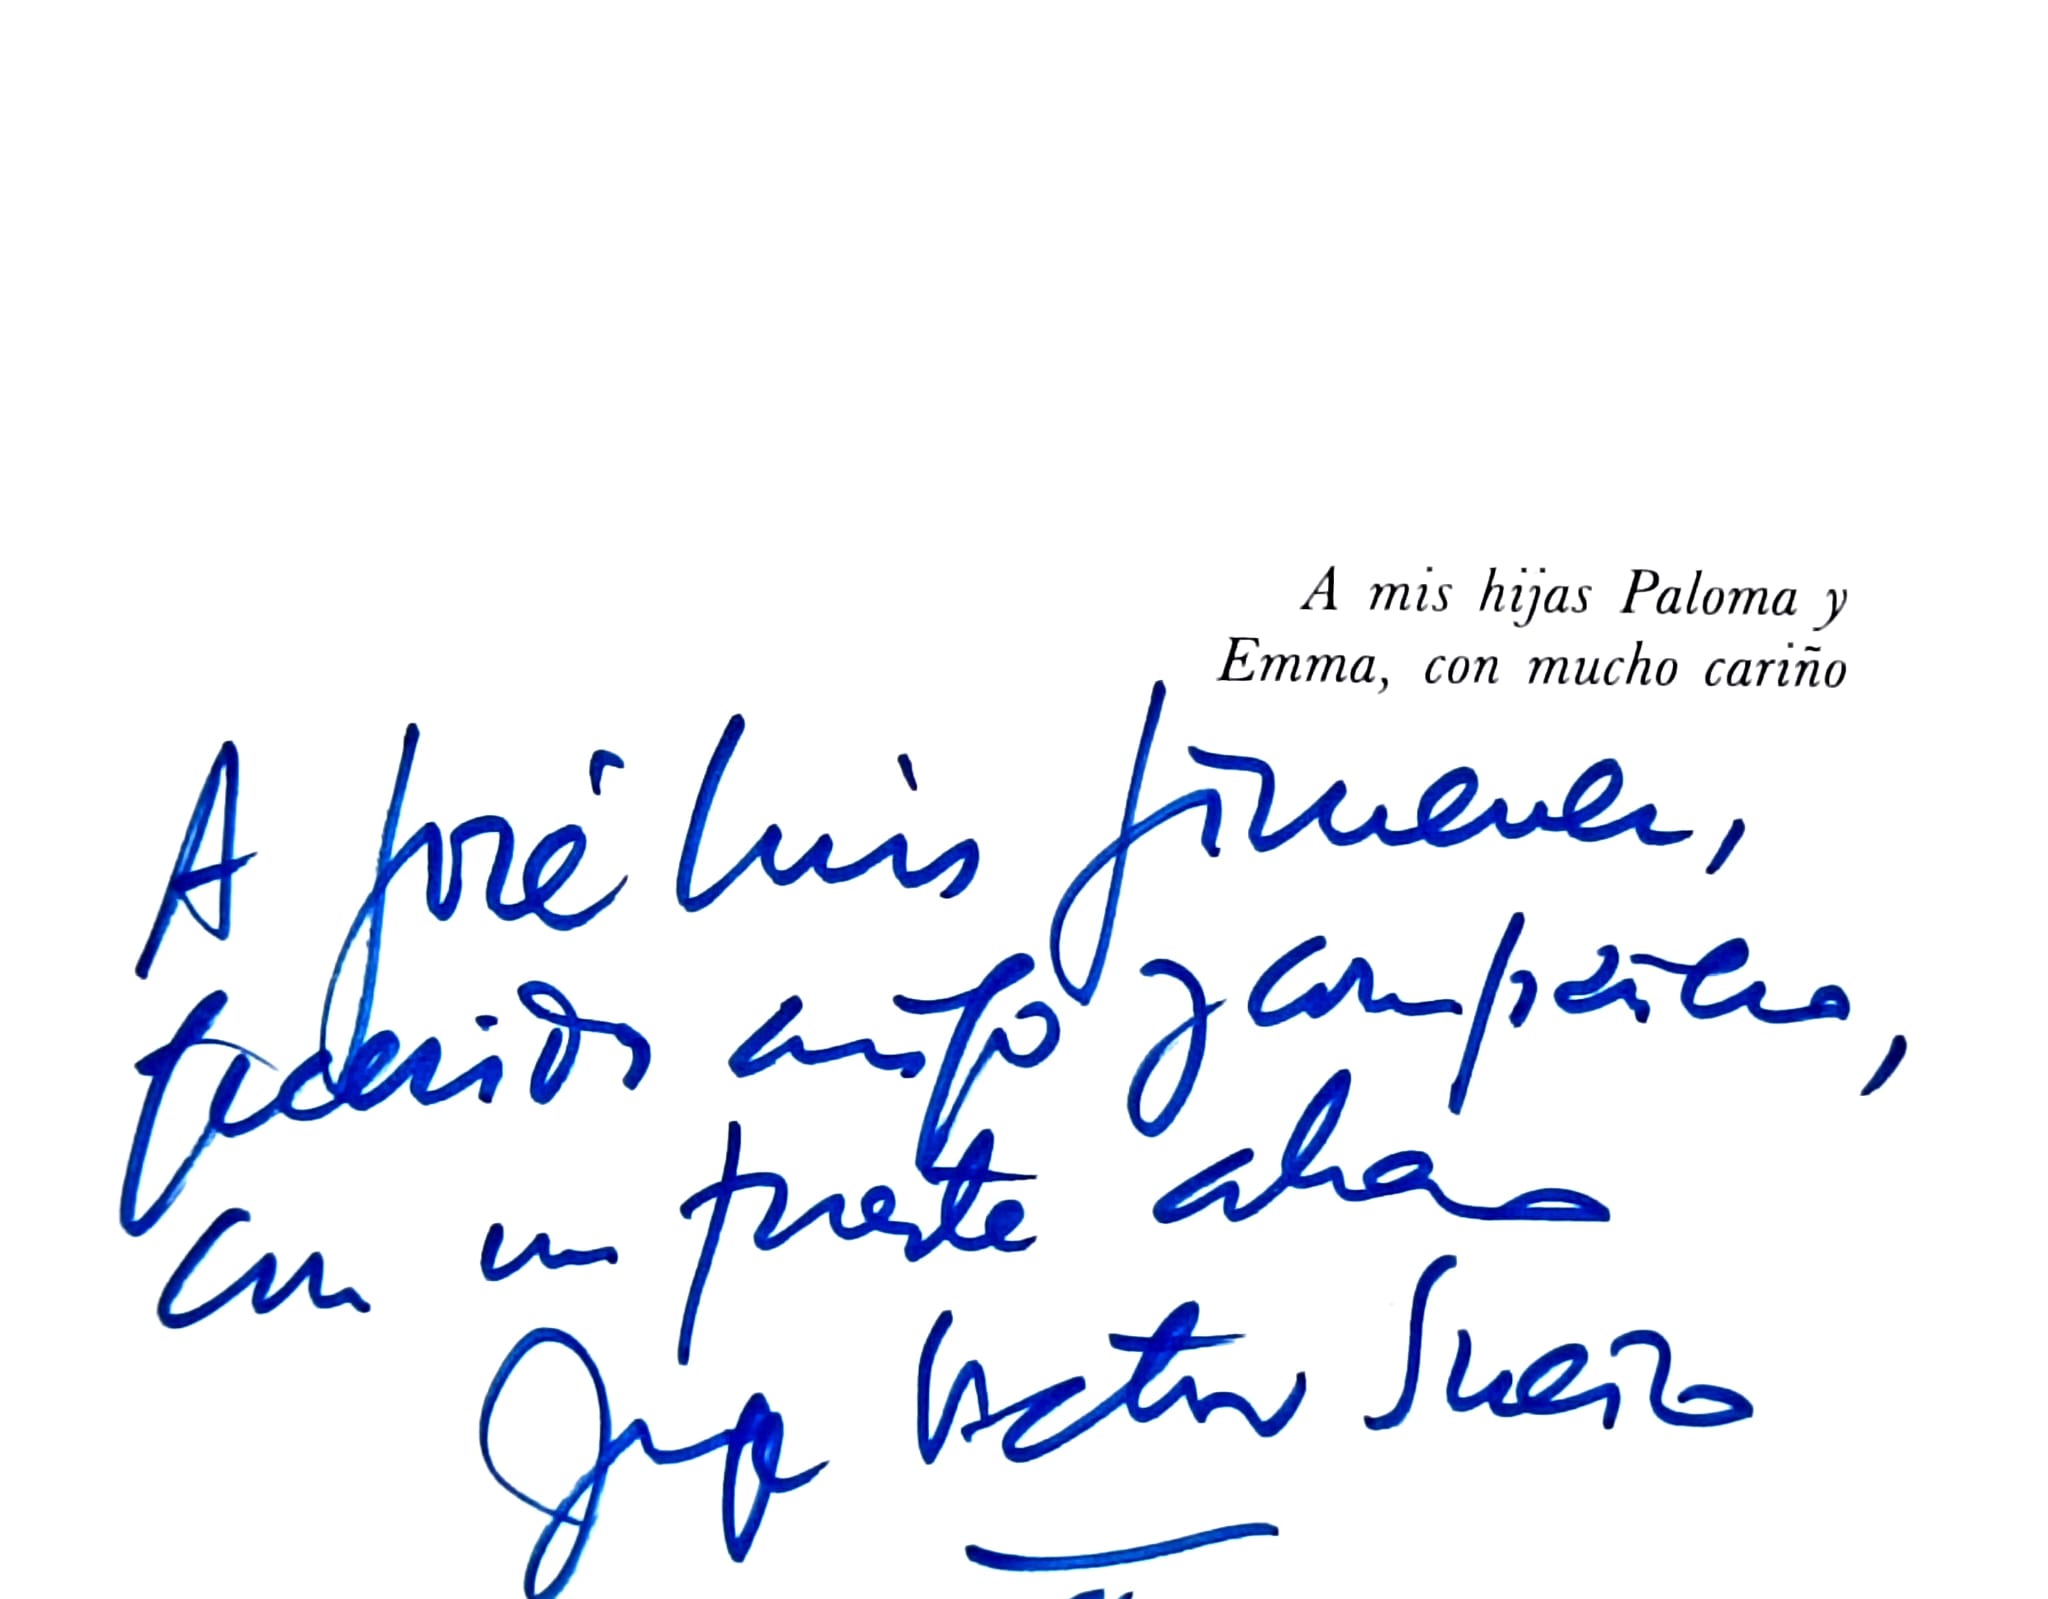 A mis hijas Paloma y
Emma, con mucho cariño
A José Luis Jimenez,
querido amigo y compañero,
con un fuerte abrazo
Jorge Victor Sueiro